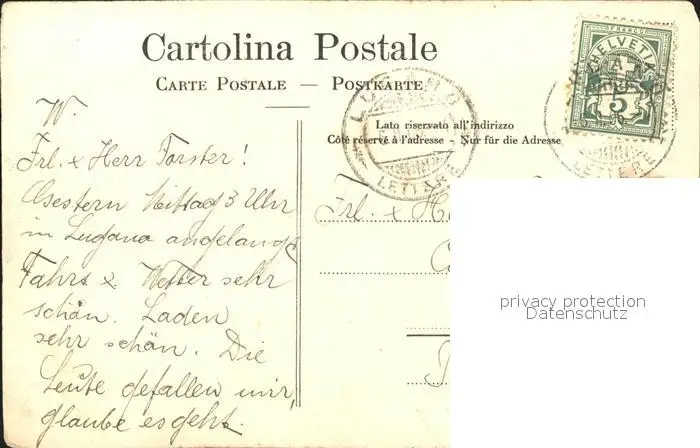 Cartolina Postale
CARTE POSTALE — POSTKARTE
FRANCO
HELVETIA
5
LUGANO
LETTERE
LETTERE
Lato riservato all'indirizzo
Côté réservé à l'adresse - Nur für die Adresse
W.
Frl. x Herr Forster!
Gestern Mittag 3 Uhr
in Lugano angelangt
Fahrt x. Wetter sehr
schön. Laden
sehr schön. Die
Leute gefallen mir,
glaube es geht.
Frl. x H
privacy protection
Datenschutz